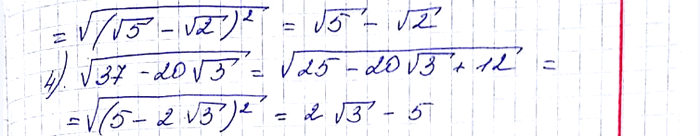 = √(√5 - √2)² = √5 - √2
4). √37 - 20√3 = √25 - 20√3 + 12 =
= √(5 - 2√3)² = 2√3 - 5